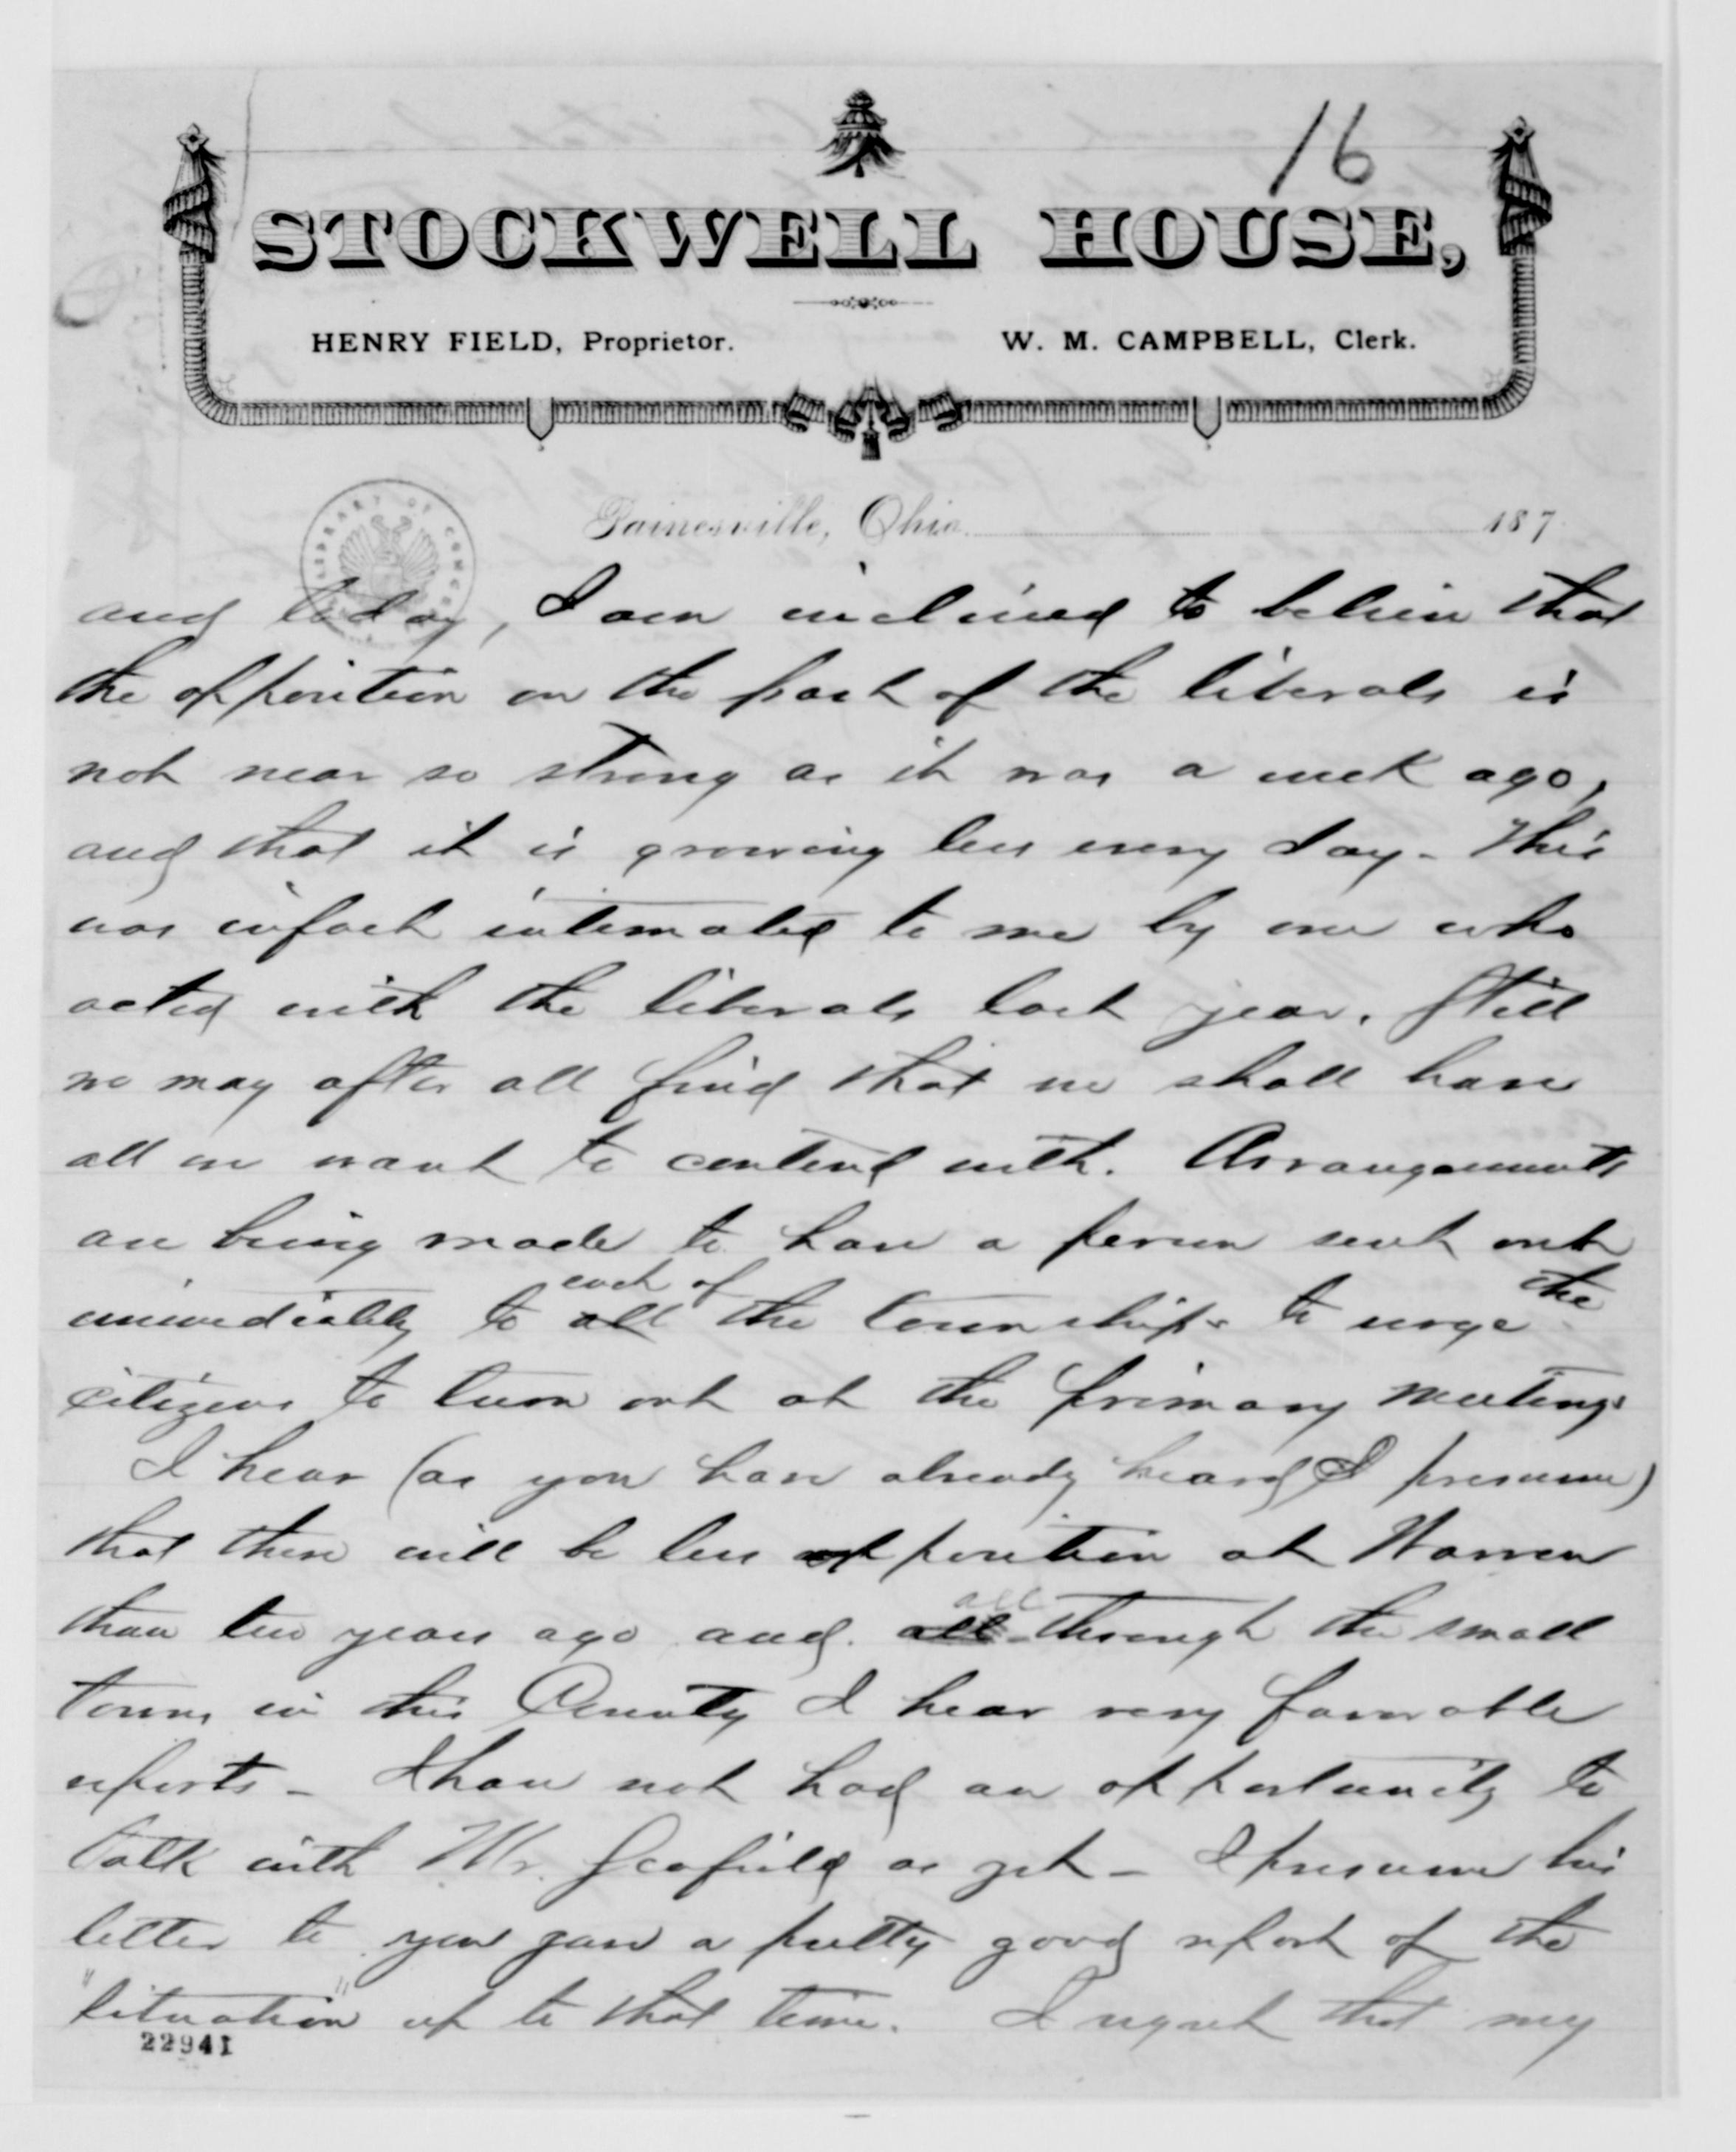 16
STOCKWELL HOUSE,
HENRY FIELD, Proprietor. W. M. CAMPBELL, Clerk.
LIBRARY OF CONGRESS
Painesville, Ohio. 187
and today, I am inclined to believe that
the opposition on the part of the liberals is
not near so strong as it was a week ago,
and that it is growing less every day - This
was infact intimated to me by one who
acted with the liberals last year. Still
we may after all find that we shall have
all we want to contend with. Arrangements
are being made to have a person sent out
immediately to all each of the townships to urge the
citizens to turn out at the primary meetings
I hear (as you have already heard I presume)
that there will be less opposition at Warren
than two years ago and all all through the small
towns in this County I hear very favorable
reports - I have not had an opportunity to
talk with Mr. Scofield as yet - I presume his
letter to you gave a pretty good report of the
"situation" up to that time. I regret that my
22941